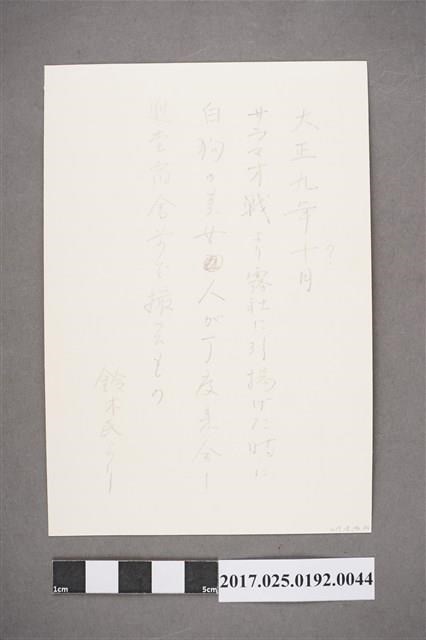 大正九年十月?
サラマオ戦より霧社に引揚げた時に
白狗の美女 人が丁度来合し
宿舎前で撮るもの
鈴木氏より
1cm
5cm
2017.025.0192.0044